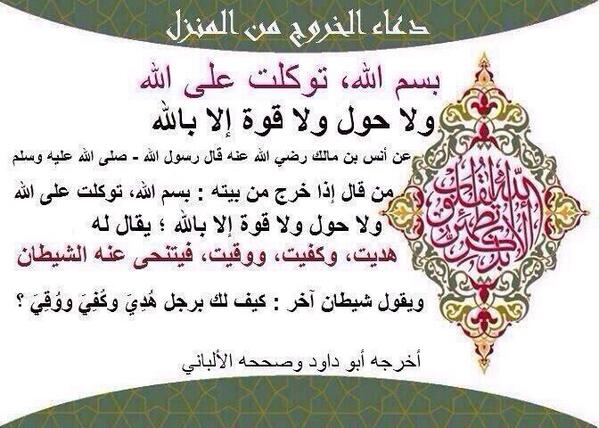 دعاء الخروج من المنزل
بسم الله، توكلت على الله
ولا حول ولا قوة إلا بالله
عن أنس بن مالك رضي الله عنه قال رسول الله - صلى الله عليه وسلم
من قال إذا خرج من بيته : بسم الله، توكلت على الله
ولا حول ولا قوة إلا بالله ؛ يقال له
هديت، وكفيت، ووقيت، فيتنحى عنه الشيطان
ويقول شيطان آخر : كيف لك برجل هُدِيَ وكُفِيَ ووُقِيَ ؟
أخرجه أبو داود وصححه الألباني
ألا بذكر الله تطمئن القلوب